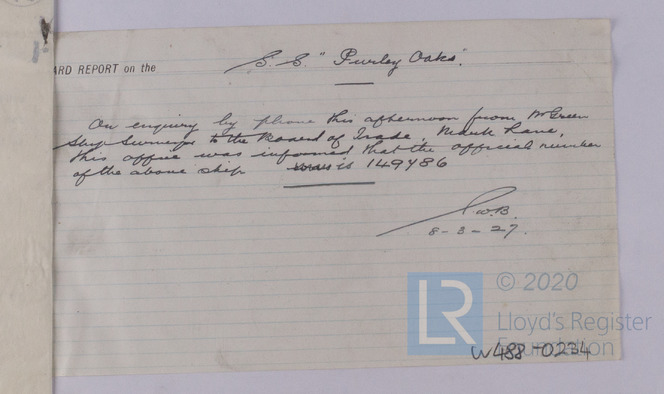 ARD REPORT on the
S.S. "Purley Oaks".
On enquiry by phone this afternoon from Mr Green
Ship Surveyor to the Board of Trade, Mark Lane,
this office was informed that the official number
of the above ship is 149486
W.B.
8-3-27.
LR
© 2020
Lloyd's Register
Foundation
W488-0234